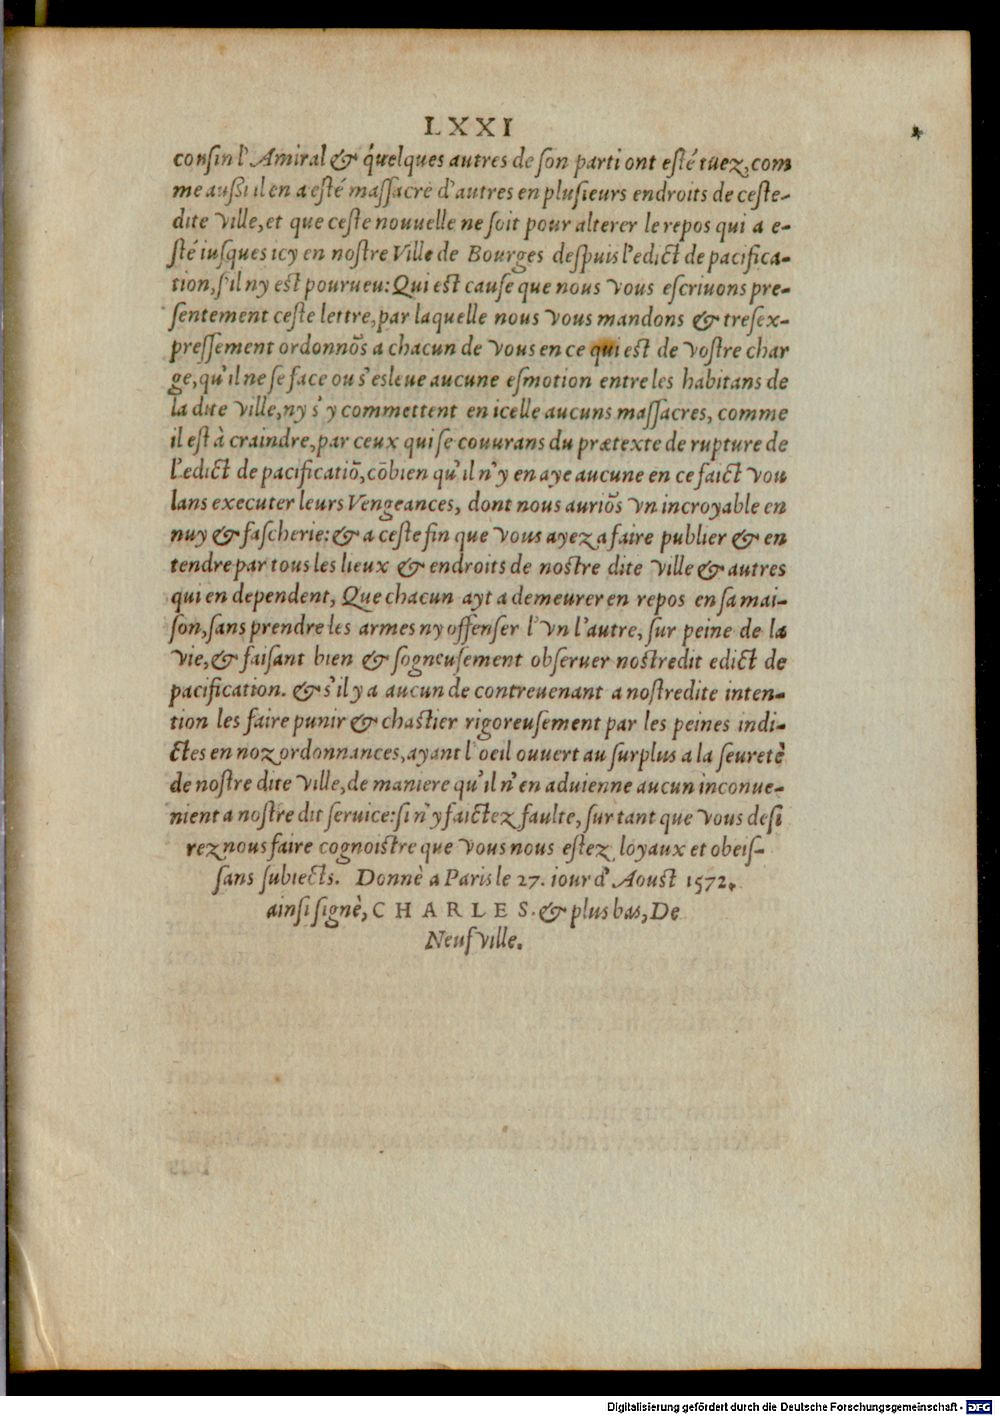 LXXI
consin l'Amiral & quelques autres de son parti ont esté tuez, com
me aussi il en a esté massacré d'autres en plusieurs endroits de ceste-
dite Ville, et que ceste nouuelle ne soit pour alterer le repos qui a e-
sté iusques icy en nostre Ville de Bourges despuis l'edict de pacifica-
tion, s'il ny est pourueu: Qui est cause que nous vous escriuons pre-
sentement ceste lettre, par laquelle nous vous mandons & tresex-
pressement ordonnōs a chacun de vous en ce qui est de vostre char
ge, qu'il ne se face ou s'esleue aucune esmotion entre les habitans de
la dite Ville, ny s'y commettent en icelle aucuns massacres, comme
il est à craindre, par ceux qui se couurans du prætexte de rupture de
l'edict de pacificatiō, cōbien qu'il n'y en aye aucune en ce faict vou
lans executer leurs Vengeances, dont nous auriōs vn incroyable en
nuy & fascherie: & a ceste fin que vous ayez a faire publier & en
tendre par tous les lieux & endroits de nostre dite Ville & autres
qui en dependent, Que chacun ayt a demeurer en repos en sa mai-
son, sans prendre les armes ny offenser l'vn l'autre, sur peine de la
vie, & faisant bien & sogneusement obseruer nostredit edict de
pacification. & s'il y a aucun de contreuenant a nostredite inten-
tion les faire punir & chastier rigoreusement par les peines indi-
ctes en noz ordonnances, ayant l'oeil ouuert au surplus a la seuretè
de nostre dite Ville, de maniere qu'il n'en aduienne aucun inconue-
nient a nostre dit seruice: si n'y faictez faulte, sur tant que vous desi
rez nous faire cognoistre que vous nous estez loyaux et obeis-
sans subiects. Donnè a Paris le 27. iour d'Aoust 1572.
ainsi signè, CHARLES. & plus bas, De
Neufville.
Digitalisierung gefördert durch die Deutsche Forschungsgemeinschaft - DFG